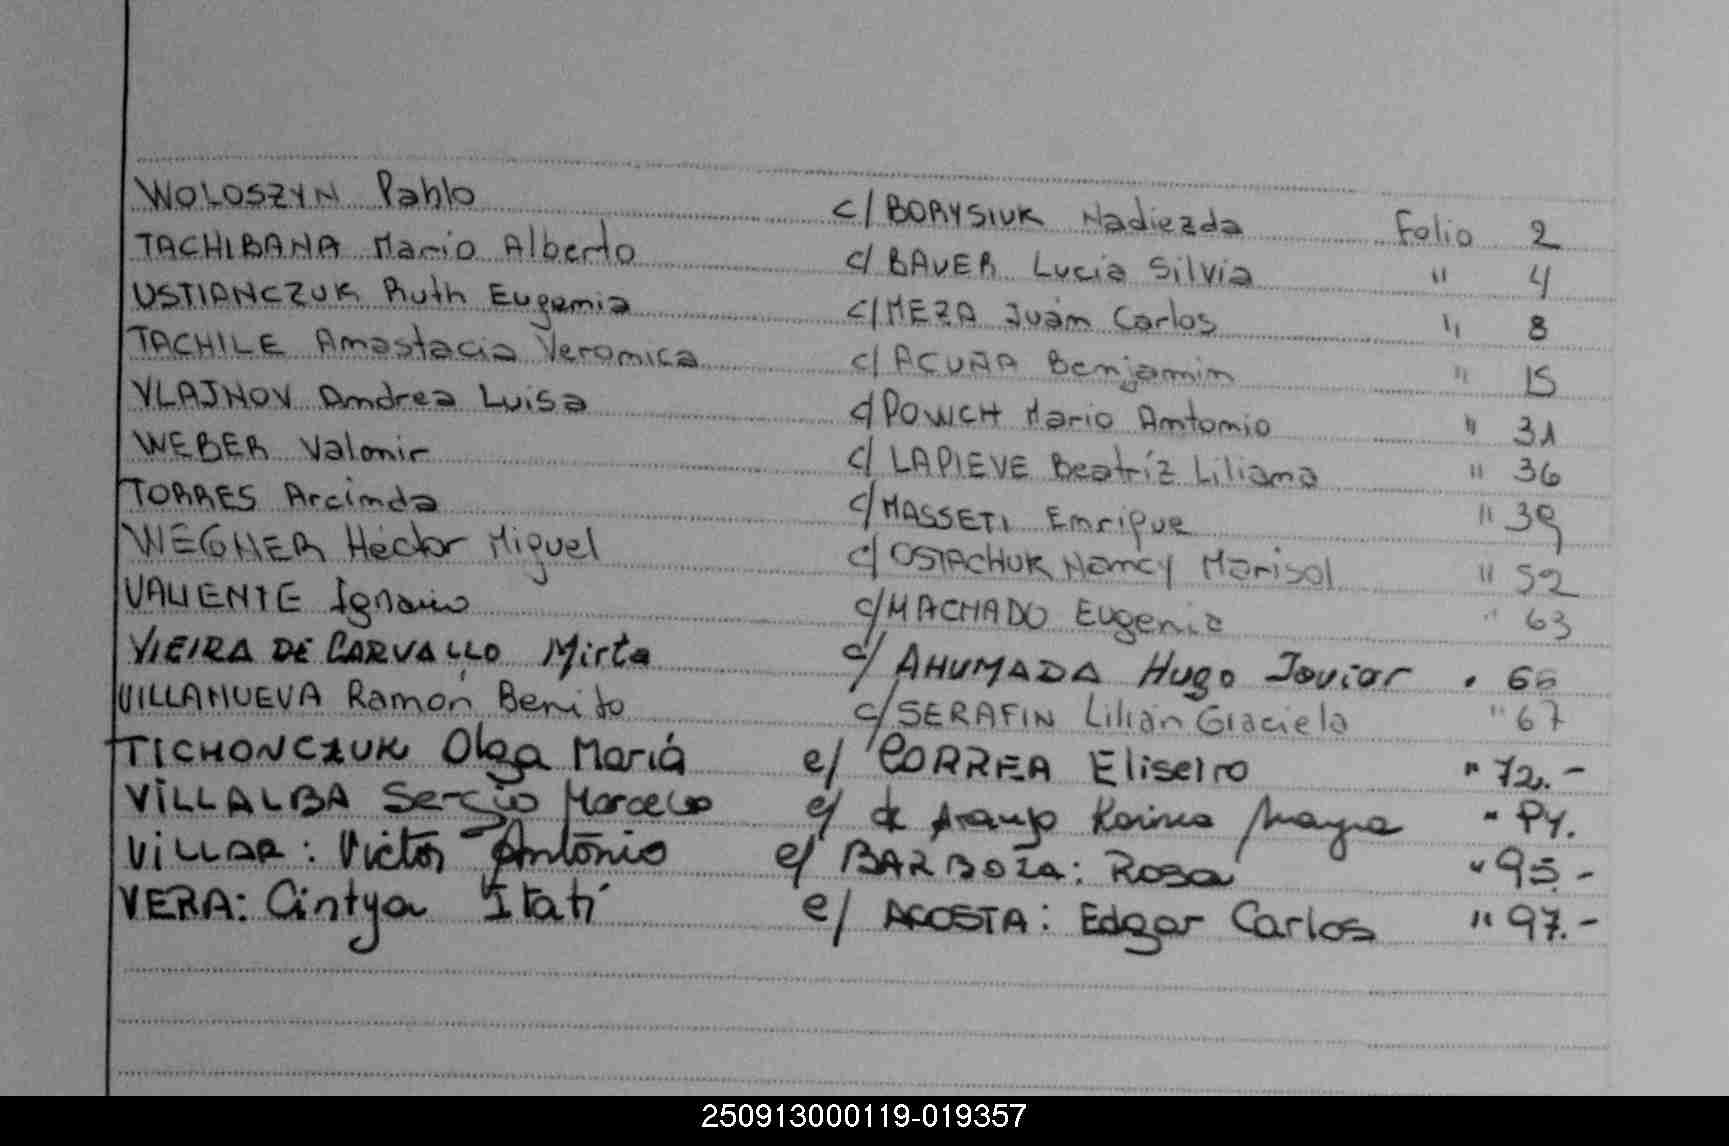 WOLOSZYN Pablo c/ BORYSIUK Nadiezda Folio 2
TACHIBANA Mario Alberto c/ BAUER Lucia Silvia " 4
USTIANCZUK Ruth Eugenia c/ MEZA Juan Carlos " 8
TACHILE Anastacia Veronica c/ ACUÑA Benjamin " 15
VLAJNOV Andrea Luisa c/ POWCH Mario Antonio " 31
WEBER Valonir c/ LAPIEVE Beatríz Liliana " 36
TORRES Arcinda c/ MASSETI Enrique " 39
WEGNER Héctor Miguel c/ OSTACHUK Nancy Marisol " 52
VALIENTE Ignacio c/ MACHADO Eugenia " 63
VIEIRA DE CARVALLO Mirta c/ AHUMADA Hugo Javier " 66
VILLANUEVA Ramón Benito c/ SERAFIN Lilian Graciela " 67
TICHONCZUK Olga Mariá c/ CORREA Eliseiro " 72.-
VILLALBA Sergio Marcelo c/ de Araujo Karina Mayra "
VILLAR: Victor Antonio c/ BARBOZA: Rosa " 95.-
VERA: Cintya Itatí c/ ACOSTA: Edgar Carlos " 97.-
250913000119-019357